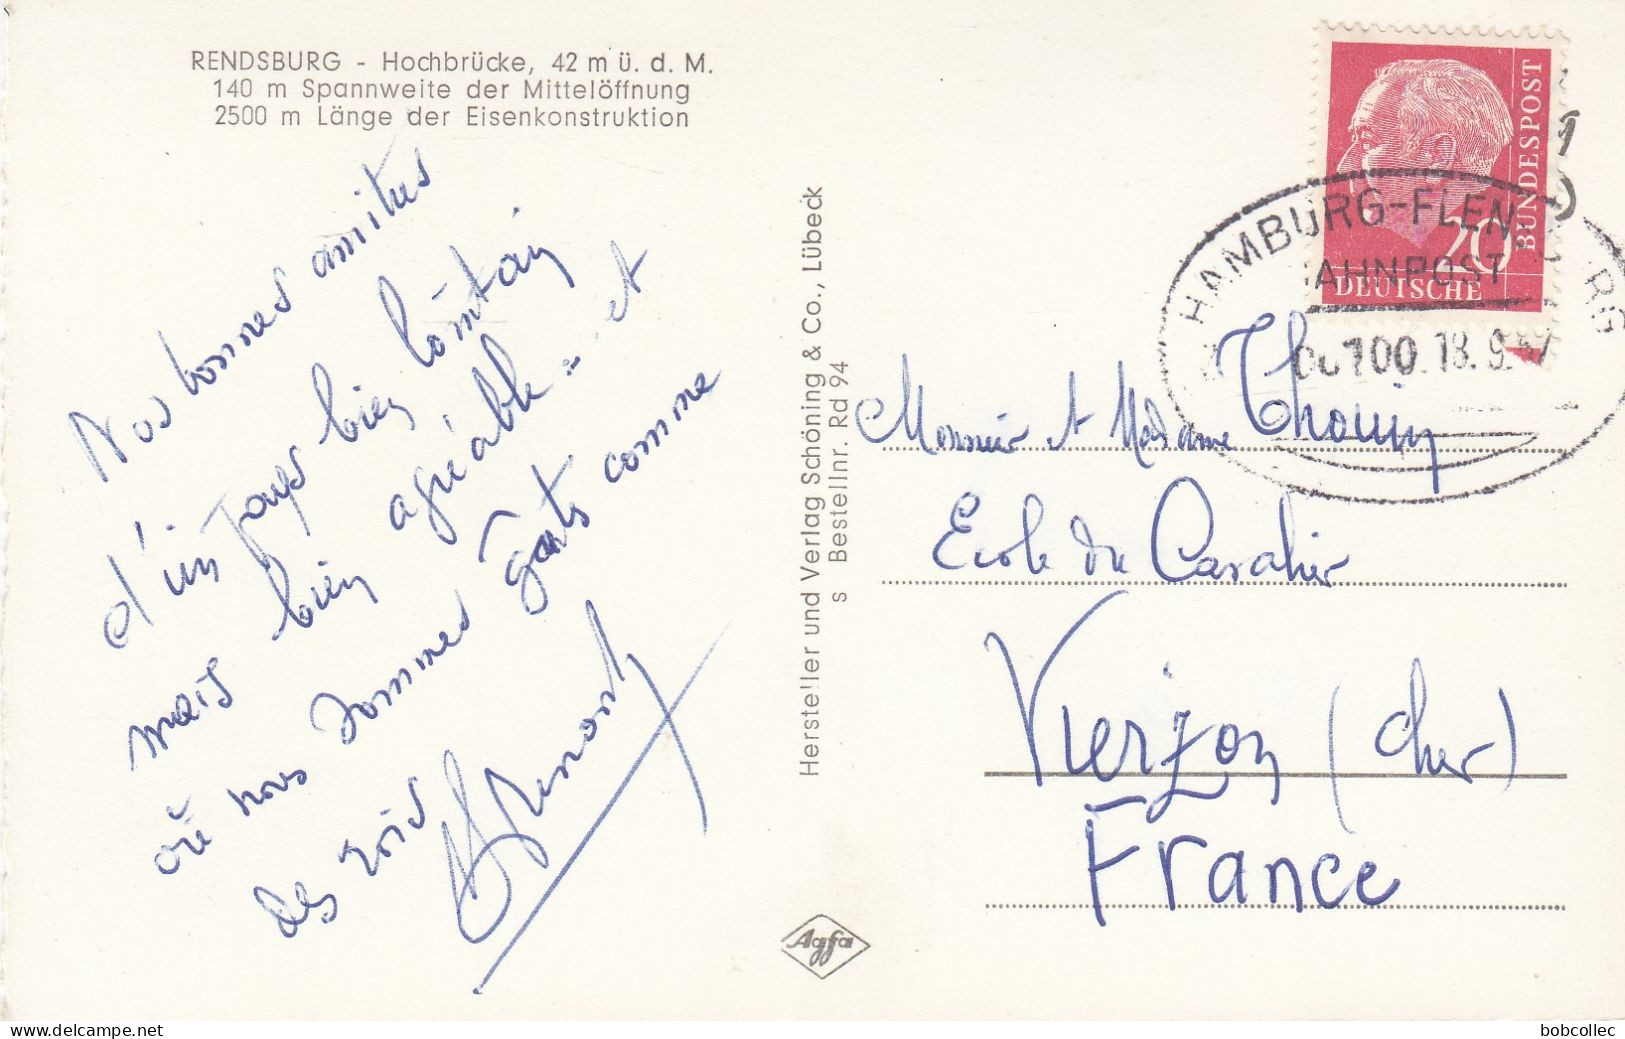 RENDSBURG - Hochbrücke, 42 m ü. d. M.
140 m Spannweite der Mittelöffnung
2500 m Länge der Eisenkonstruktion
Nos bonnes amitiés
d'un pays bien lointain
mais bien agréable - et
où nous sommes gâtés comme
des rois
Hersteller und Verlag Schöning & Co., Lübeck
s Bestellnr. Rd 94
Agfa
DEUTSCHE
BUNDESPOST
20
HAMBURG-FLEN RG
AHNPOST
700 18.9.57
Monsieur et Madame Thouin
Ecole du Cavalier
Vierzon (Cher)
France
bobcollec